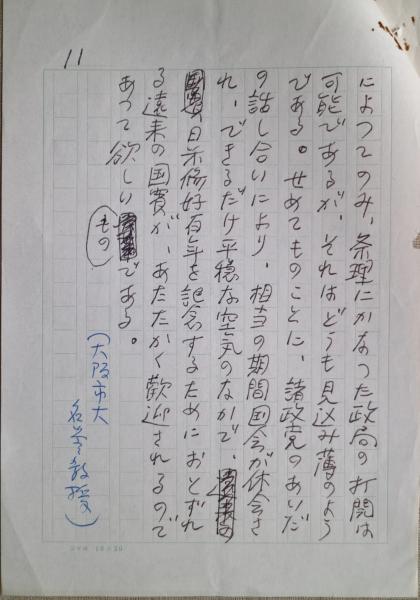 11
によつてのみ、条理にかなつた政局の打開は
可能であるが、それはどうも見込み薄のよう
である。せめてものことに、諸政党のあいだ
の話し合いにより、相当の期間国会が休会さ
れ、できるだけ平穏な空気のなかで、
日米修好百年を記念するためにおとずれ
る遠来の国賓が、あたたかく歓迎されるので
あつて欲しいものである。
(大阪市大
名誉教授)